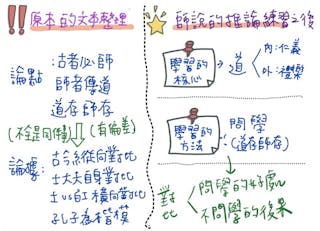 !! 原本的文本整理
論點：古者必師
師者傳道
道存師存
(不全是同質) (有偏差)
論據：古今縱向對比
士大夫自身對比
士vs百工橫向對比
孔子為楷模
師說的推論練習之後
學習的核心
道
內：仁義
外：禮樂
學習的方法
問學
(道存師存)
對比
問學的好處
不問學的後果